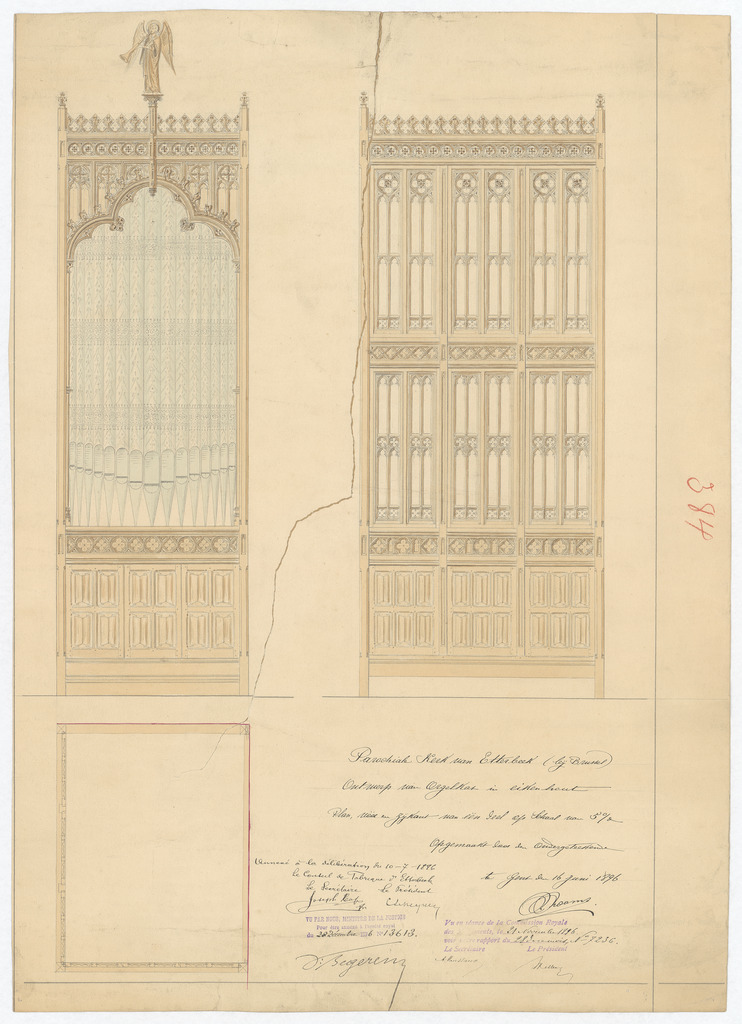 Parochiale Kerk van Etterbeek (bij Brussel)
Ontwerp van Orgelkas in eikenhout
Plan, en zijkant van één deel op schaal van 5%
Opgemaakt door de ondergeteekende
Gent den 16 Juni 1896
Annexé à la délibération du 10-7-1896
Le Conseil de Fabrique d'Etterbeek
Le Secrétaire Le Président
Joseph
VU PAR NOUS, MINISTRE DE LA JUSTICE
Pour être annexé à l'arrêté royal
du 28 Décembre 1896 N° 13613.
Vu en séance de la Commission Royale
des Monuments, le 21 Novembre 1896
sous le rapport du N° 7236.
Le Secrétaire Le Président
384